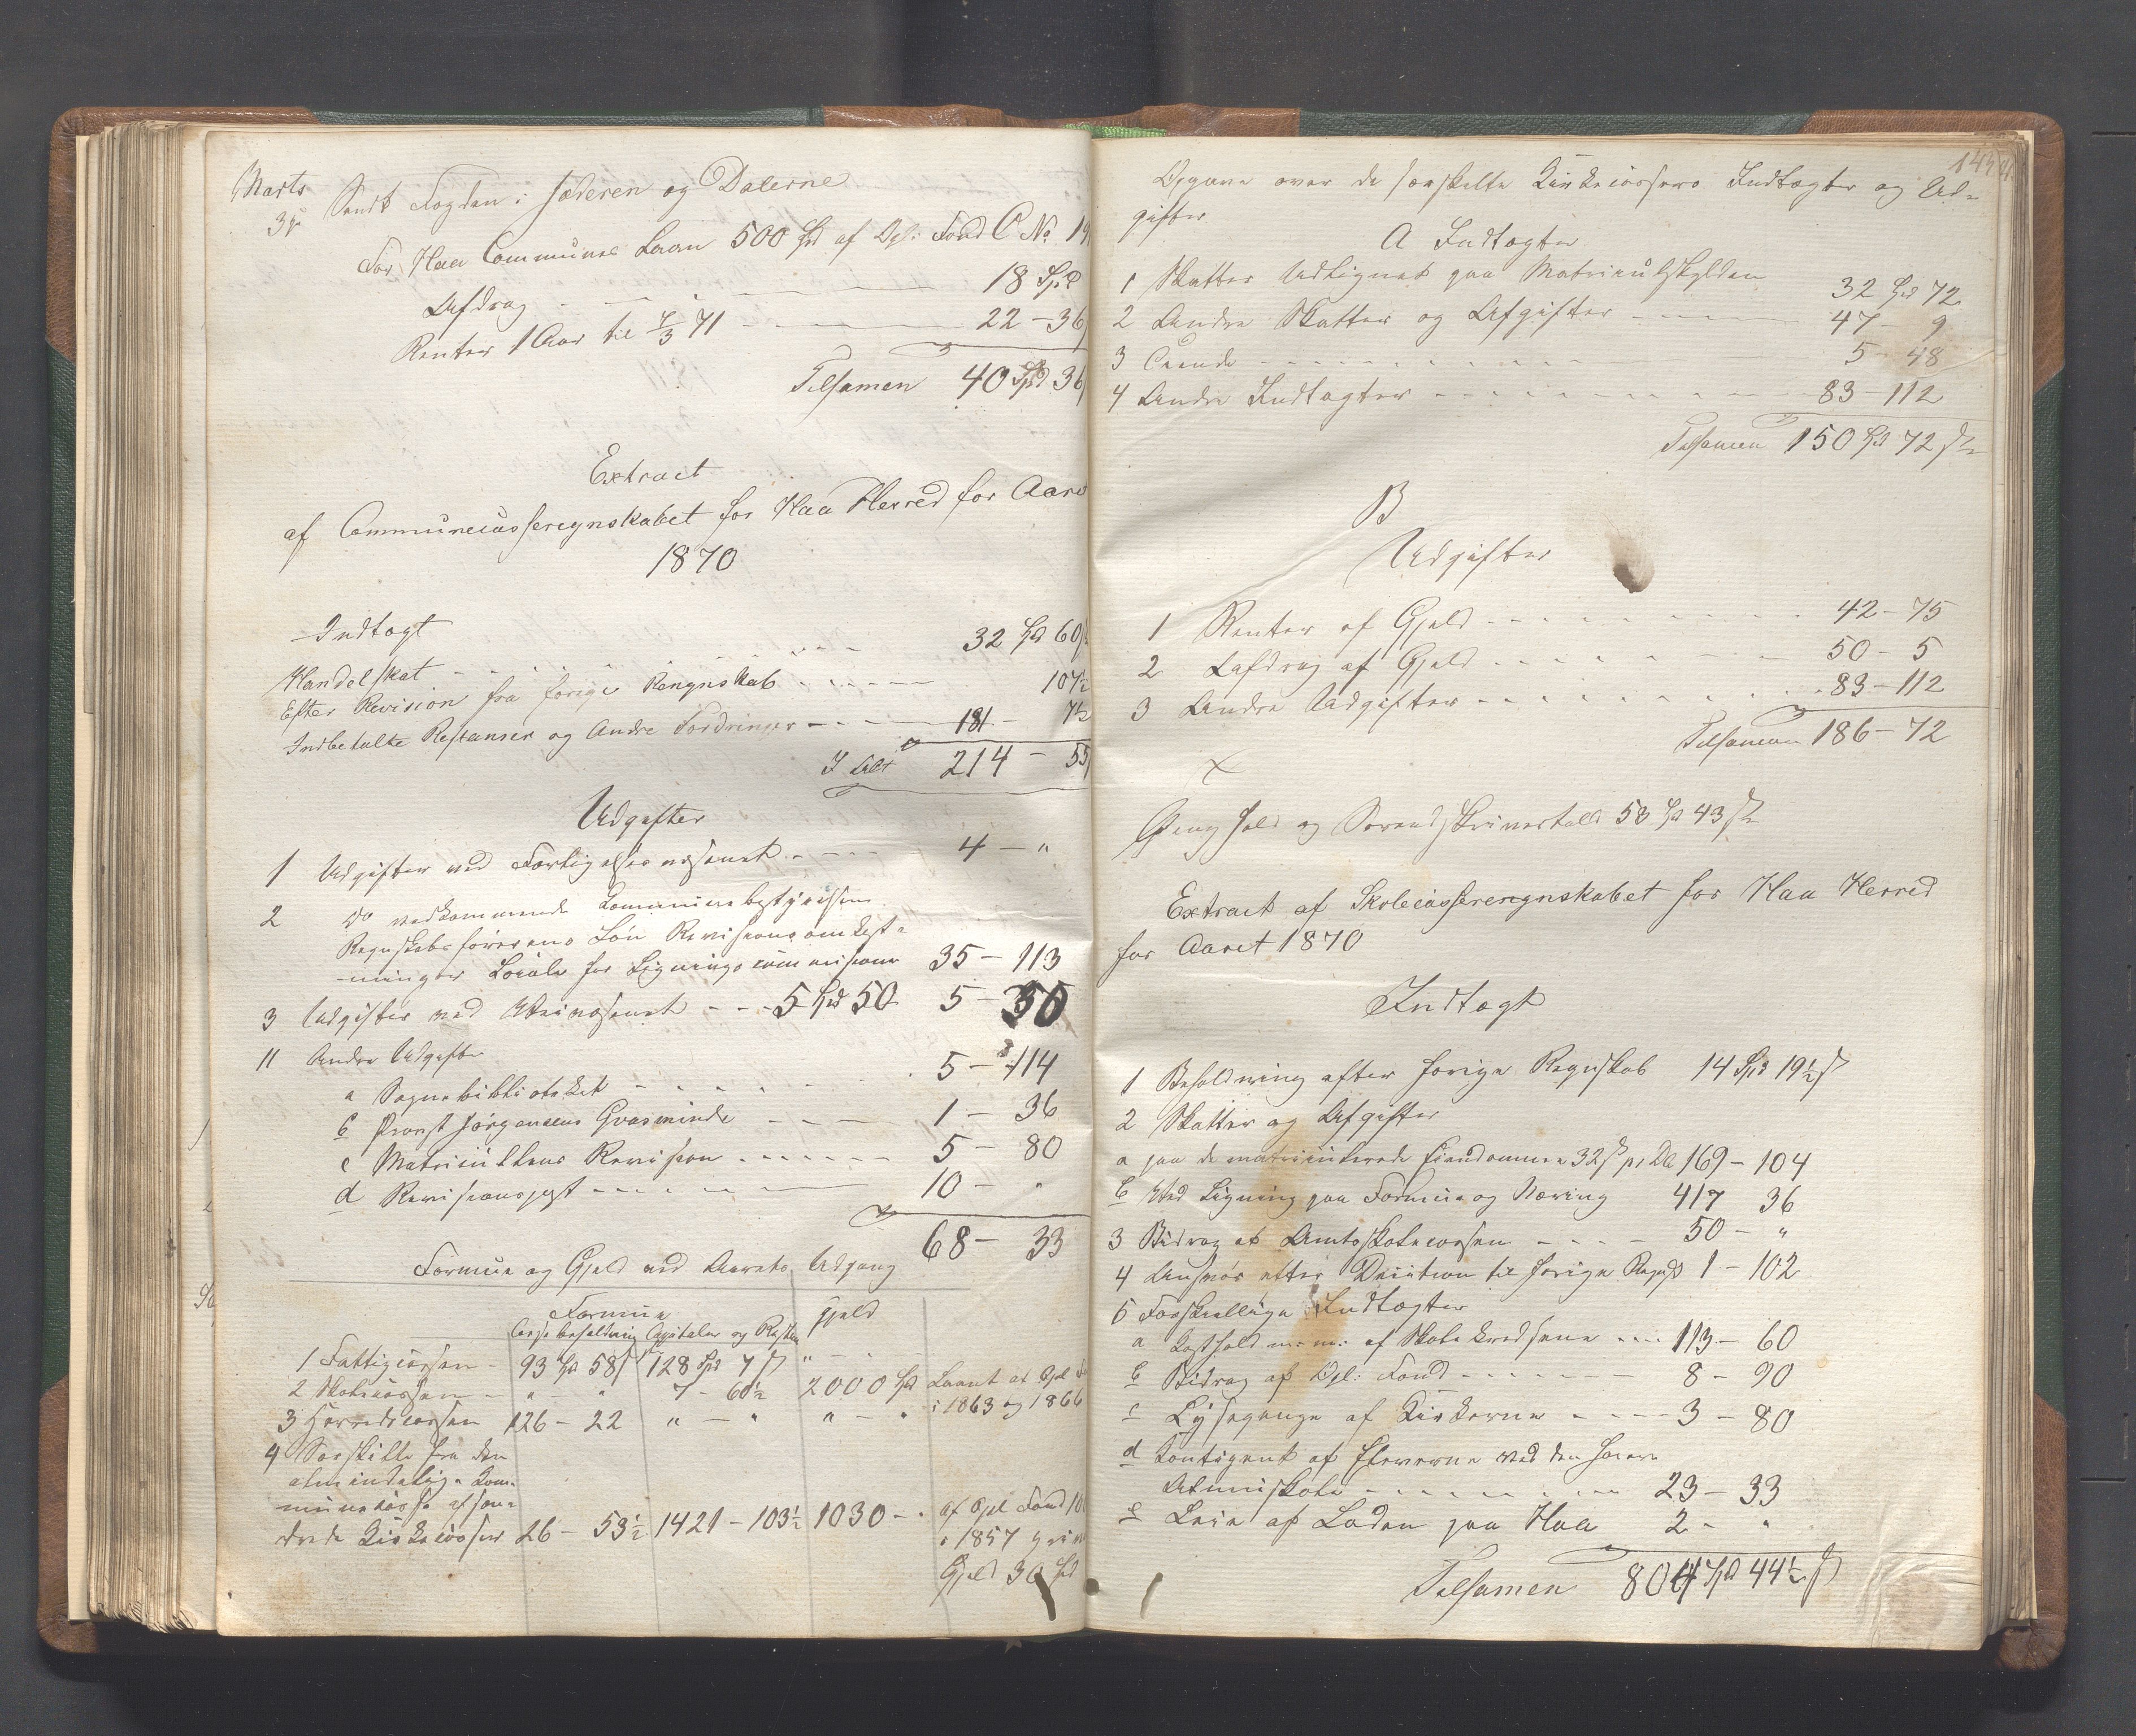 Marts
3de Sendt Fogden i Jæderen og Dalerne
For Haa Communes Laan 500 Spd af Opl: Fond C No 19
Afdrag - - - 18 Spd
Renter 1 Aar til 4/3 71 - - - 22 - 36
Tilsamen 40 Spd 36
Extract
af Communecasseregnskabet for Haa Herred for Aare
1870
Indtægt
Handelskat - - - 32 Spd 60
Efter Revision fra forige Rengnskab - - - 107½
Indbetalte Restanser og Andre Fordringer - - - 181 - 7½
I Alt 214 - 55
Udgifter
1 Udgifter ved Forligelsesvæsenet - - - 4 - "
2 do vedkommende Communebestyrelsen
Regnskabsførerens Løn Revisionsomkost=
=ninger Locale for Ligningscommisionen 35 - 113
3 Udgifter ved Veivæsenet - - - 5 Spd 50 5 - 50
11 Andre Udgifter
a Sognebibliotheket - - - 5 - 114
b Provst Jørgensens Gravminde - - - 1 - 36
c Matriculens Revision - - - 5 - 80
d Revisionspost - - - 10 - "
68 - 33
Formue og Gjeld ved Aarets Udgang
Formue Gjeld
Cassebeholdning Capitaler og Rester
1 Fattigcassen - 93 Spd 58 ß 128 Spd 7 ß " - -
2 Skolecassen - " - " 7 - 60½ 2000 Spd Laant af Opl
i 1863 og 1866
3 Herredscassen 126 - 22 " - " " - "
4 Særskilte fra den
almindelige Com=
munecasse afson=
drede Kirkecasser 26 - 53½ 1421 - 103½ 1030 - " af Opl Fond
i 1857
Gjeld 30 Spd
Opgave over de særskilte Kirkecassers Indtægter og Ud=
gifter
A Indtægter
1 Skatter Udlignet paa Matriculskylden 32 Spd 72
2 Andre Skatter og Afgifter - - - 47 - 9
3 Tiende - - - 5 - 48
4 Andre Indtægter - - - 83 - 112
Tilsamen 150 Spd 72 ß
B
Udgifter
1 Renter af Gjeld - - - 42 - 75
2 Afdrag af Gjeld - - - 50 - 5
3 Andre Udgifter - - - 83 - 112
Tilsamen 186 - 72
x
og Sorendskrivertold 53 Spd 43 ß
Extract af Skolecasserengnskabet for Haa Herred
for Aaret 1870
Indtægt
1 Beholdning efter forige Regnskab 14 Spd 19½ ß
2 Skatter og Afgifter
a paa de matriculerede Eiendomme 32 ß pr Dl 169 - 104
b Ved Ligning paa Formue og Næring 417 36
3 Bidrag af Amtsskolecassen - - - 50 - "
4 Ansvar efter Decision til forige Regnsk 1 - 102
5 Forskjellige Indtægter
a Kosthold m: m: af Skolekredsene - - - 113 - 60
b Bidrag af Opl: Fond - - - 8 - 90
c Lysepenge af Kirkerne - - - 3 - 80
d Contigent af Eleverne ved den høiere
Almuskole - - - 23 - 33
e Leie af Laden paa Haa 2 - "
Tilsamen 804 Spd 44½ ß